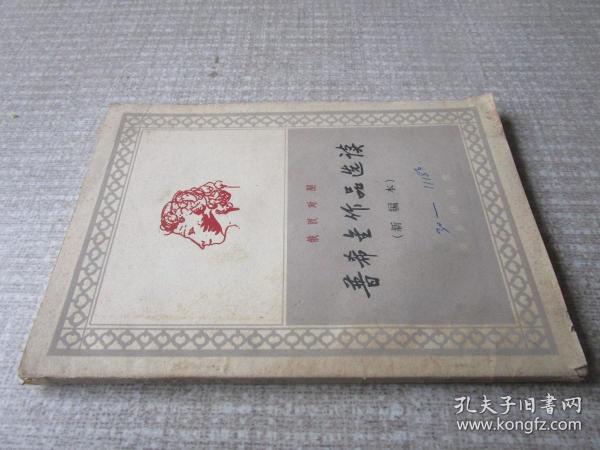 俄汉对照
普希金作品选读
(新编本)
孔夫子旧书网
www.kongfz.com